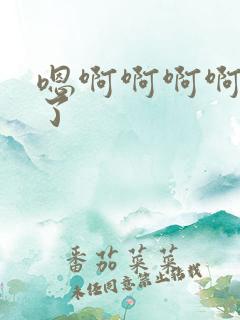 嗯啊啊啊啊
了
番茄菜菜
未经同意禁止搭找